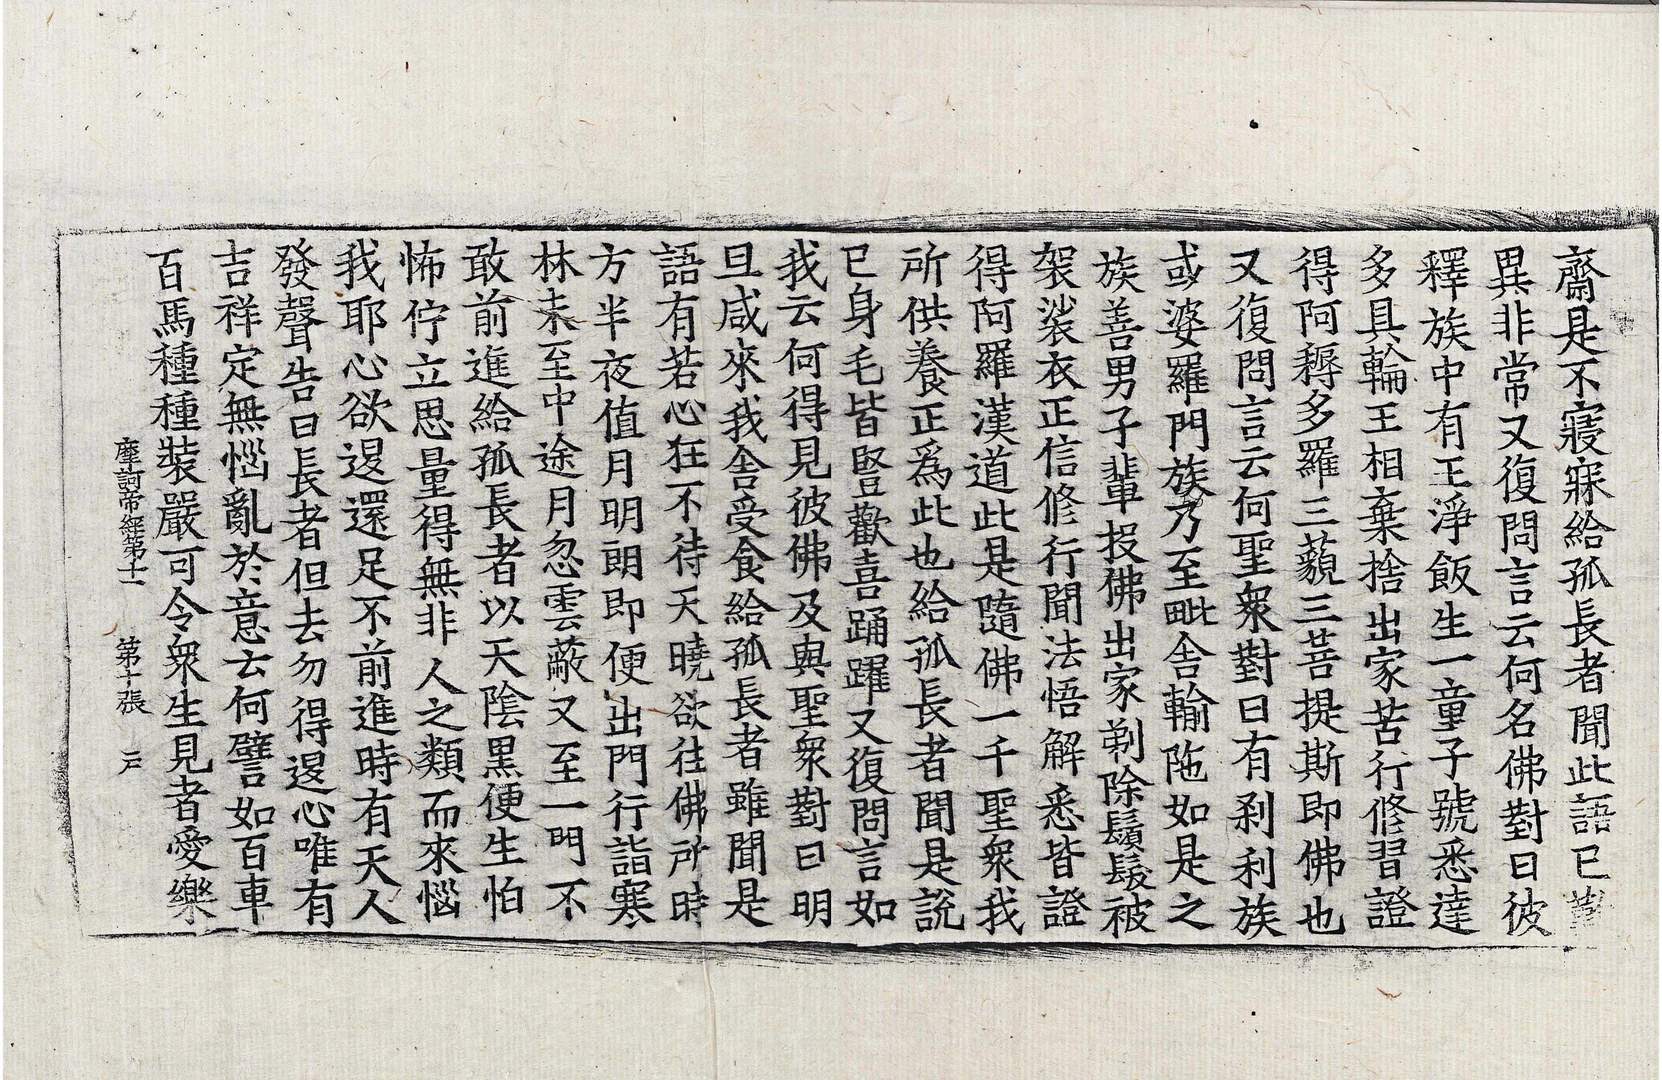 齋是不寢寐給孤長者聞此語已
異非常又復問言云何名佛對曰彼
釋族中有王淨飯生一童子號悉達
多具輪王相棄捨出家苦行修習證
得阿耨多羅三藐三菩提斯即佛也
又復問言云何聖衆對曰有刹利族
或婆羅門族乃至毗舍輸陁如是之
族善男子輩投佛出家剃除鬚髮被
袈裟衣正信修行聞法悟解悉皆證
得阿羅漢道此是隨佛一千聖衆我
所供養正爲此也給孤長者聞是說
已身毛皆豎歡喜踊躍又復問言如
我云何得見彼佛及與聖衆對曰明
旦咸來我舍受食給孤長者雖聞是
語有若心狂不待天曉欲往佛所時
方半夜值月明朗即便出門行詣寒
林未至中途月忽雲蔽又至一門不
敢前進給孤長者以天陰黑便生怕
怖佇立思量得無非人之類而來惱
我耶心欲退還足不前進時有天人
發聲告曰長者但去勿得退心唯有
吉祥定無惱亂於意云何譬如百車
百馬種種裝嚴可令衆生見者愛樂
摩訶帝經第十一 第十張 户